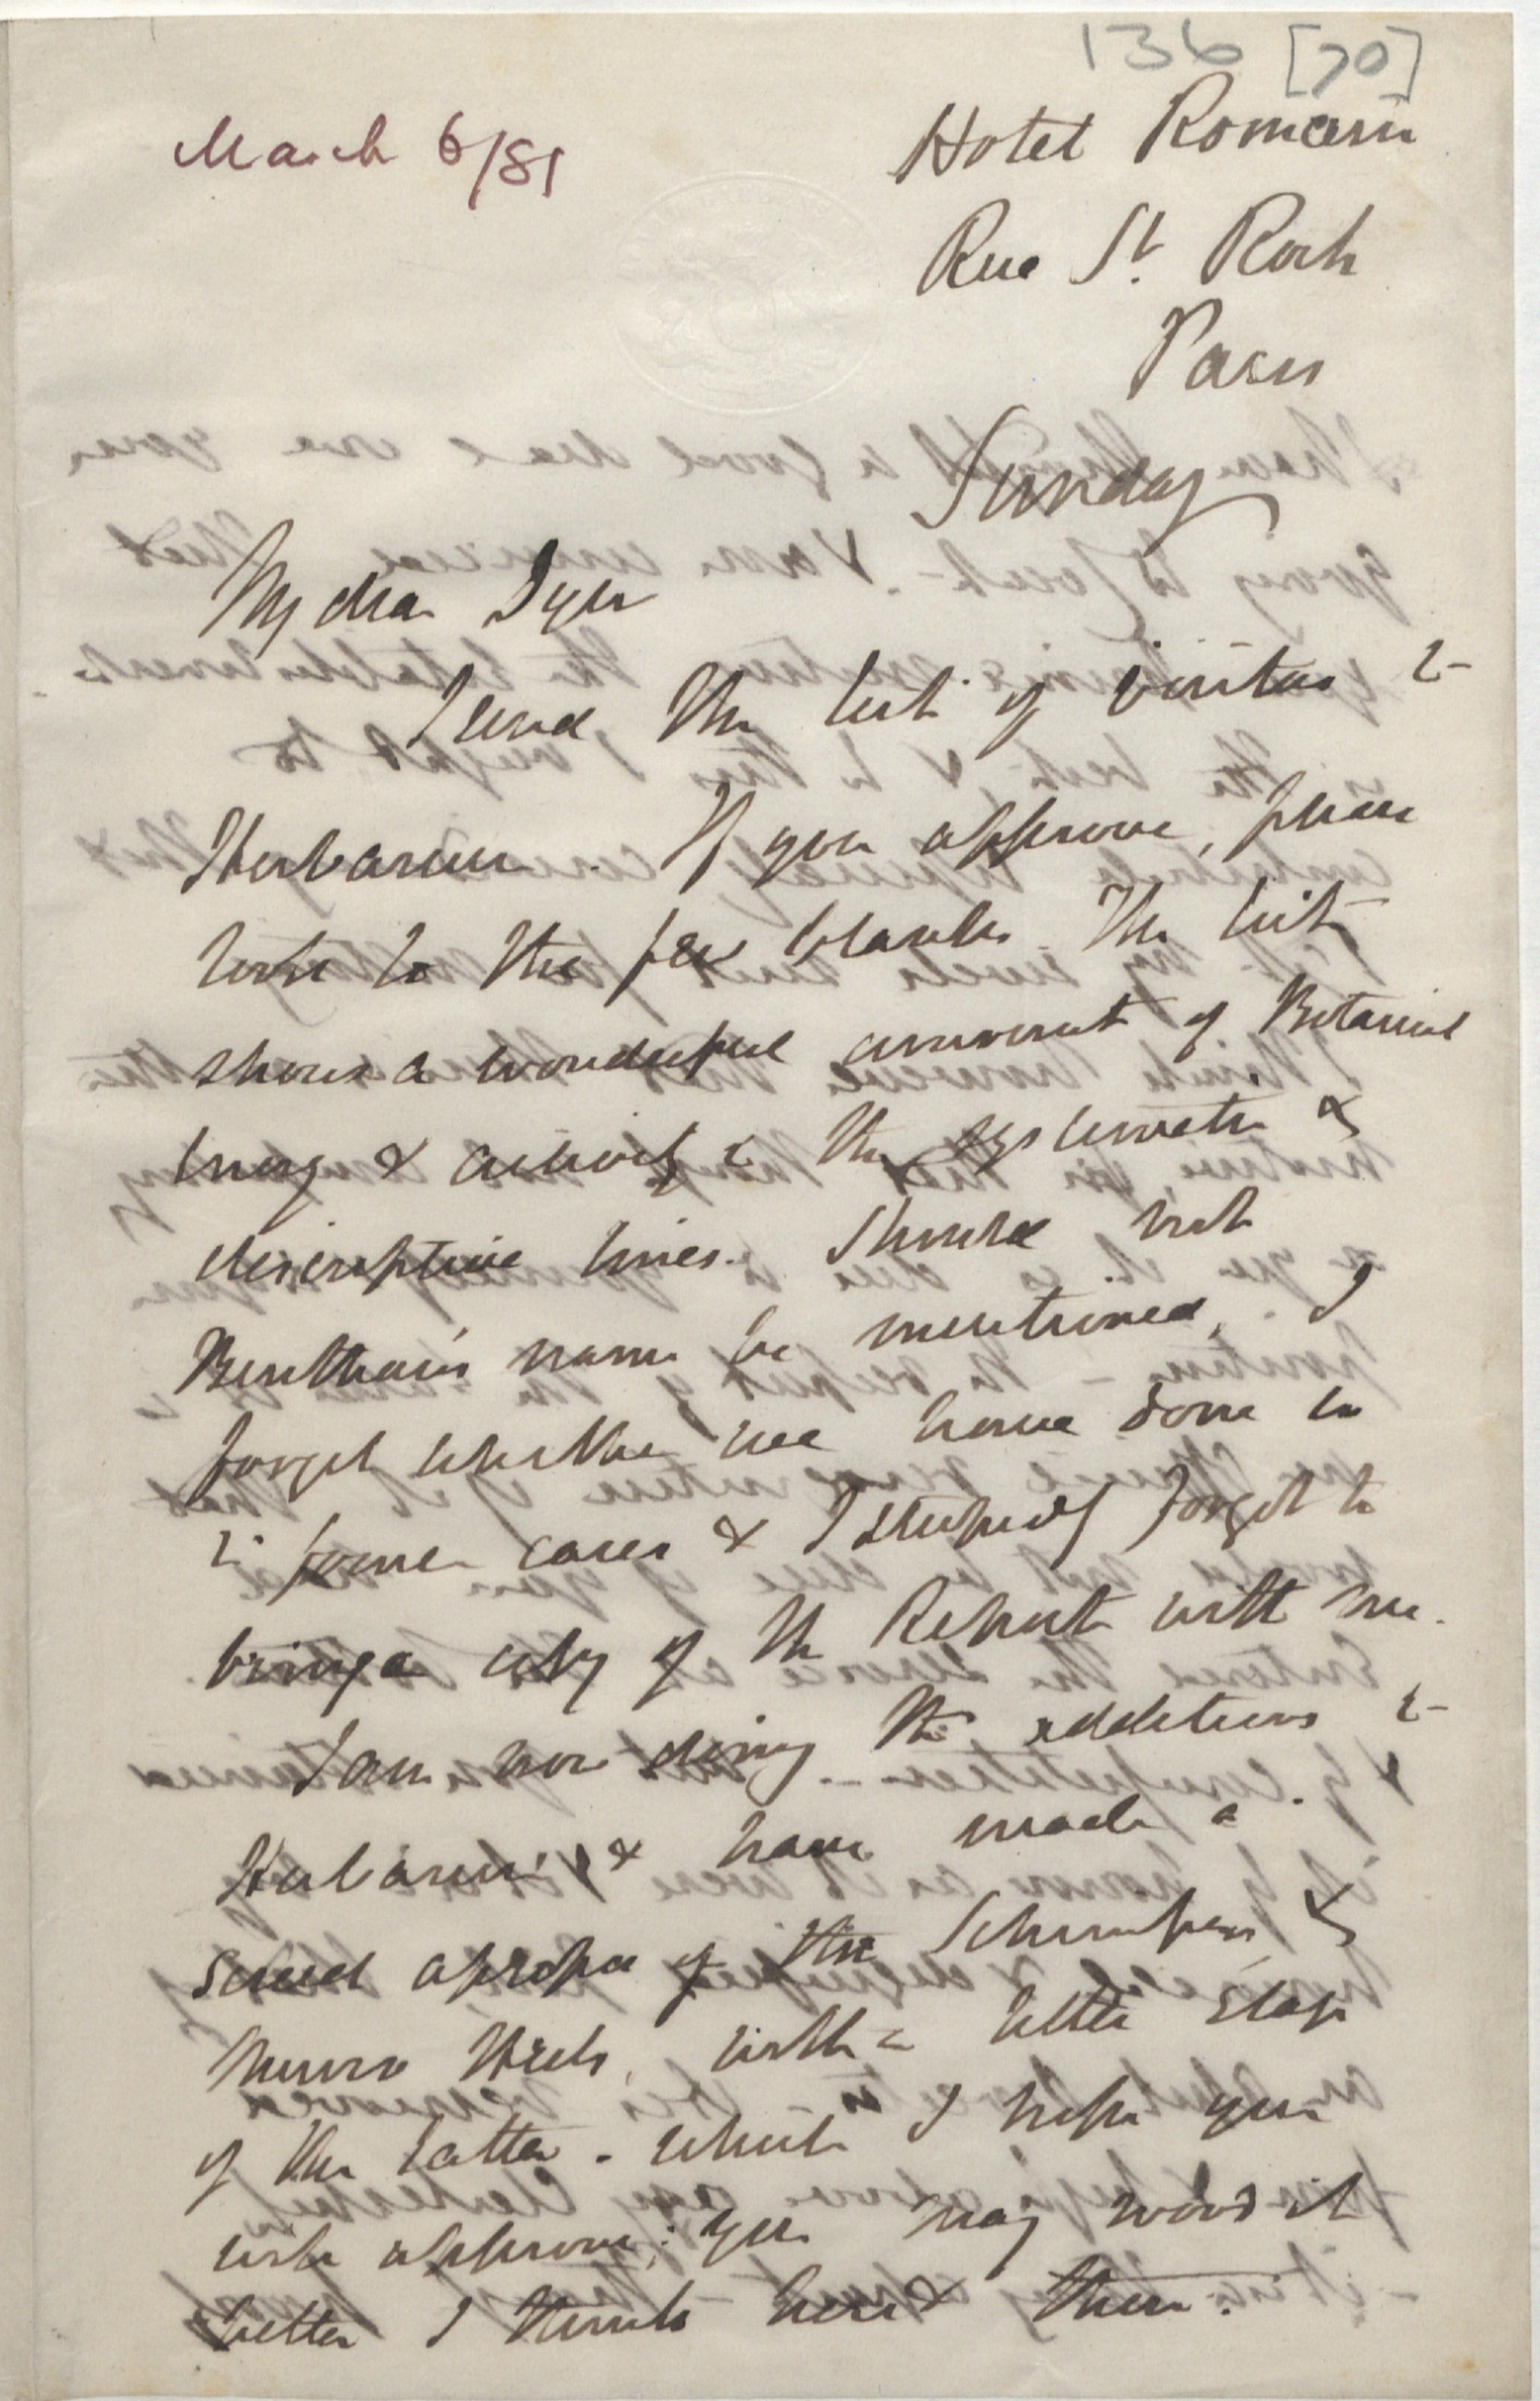 136 [70]
March 6/81
Hotel Romain
Rue St. Roch
Paris
Sunday
My dear Dyer
I send the list of visitors to
Herbarium. If you approve, please
look to the few blanks. The list
shows a wonderful amount of Botanical
energy & activity in the systematic &
descriptive lines. Should not
Bentham's name be mentioned, I
forget whether we have done so
in former cases & I stupidly forgot to
bring a copy of the Report with me.
I am now doing the additions to
Herbarium, & have made a
screed apropos of the Schimper &
Munro Herbs, with a little slap
of the latter - which I hope you
will approve; you may word it
better I think here & there.